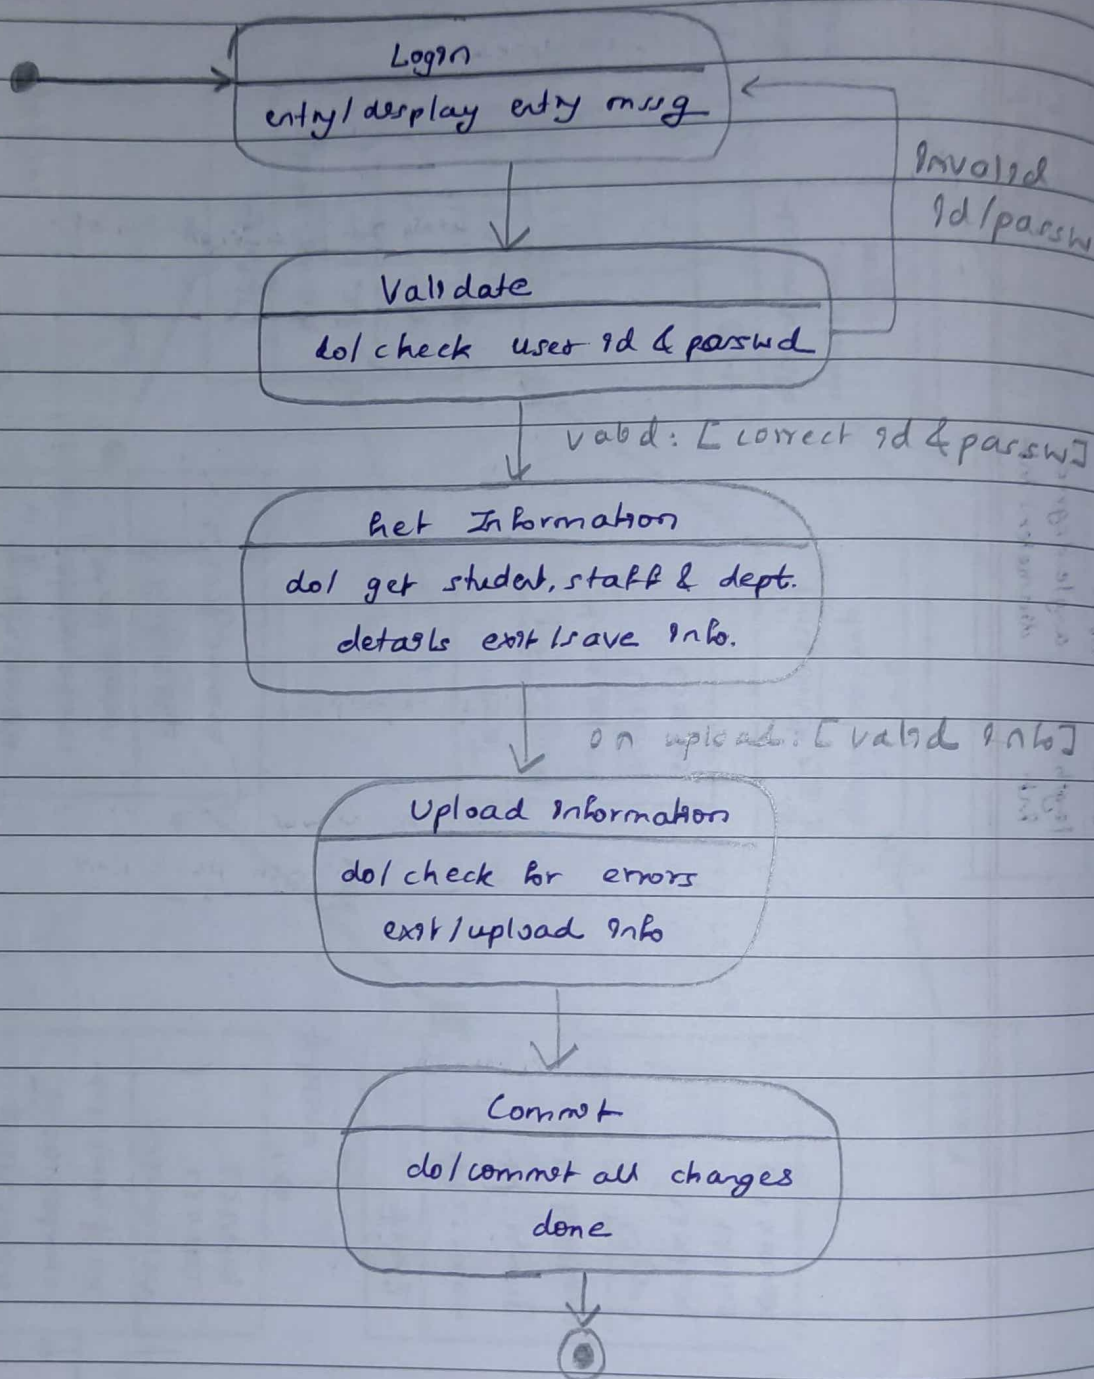 Login
entry/display entry mssg
Invalid
id/passw
Validate
do/check user id & passwd
valid: [correct id & passw]
Get Information
do/ get student, staff & dept.
details exit/save info.
on upload: [valid info]
Upload information
do/check for errors
exit/upload info
Commit
do/commit all changes
done